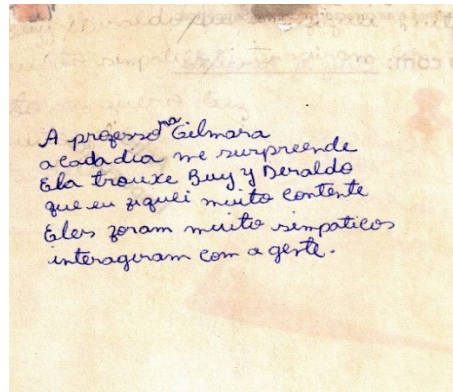 A professora Gilmara
a cada dia me surpreende
Ela trouxe Buy y Deraldo
que eu fiquei muito contente
Eles foram muito simpaticos
interagiram com a gente.